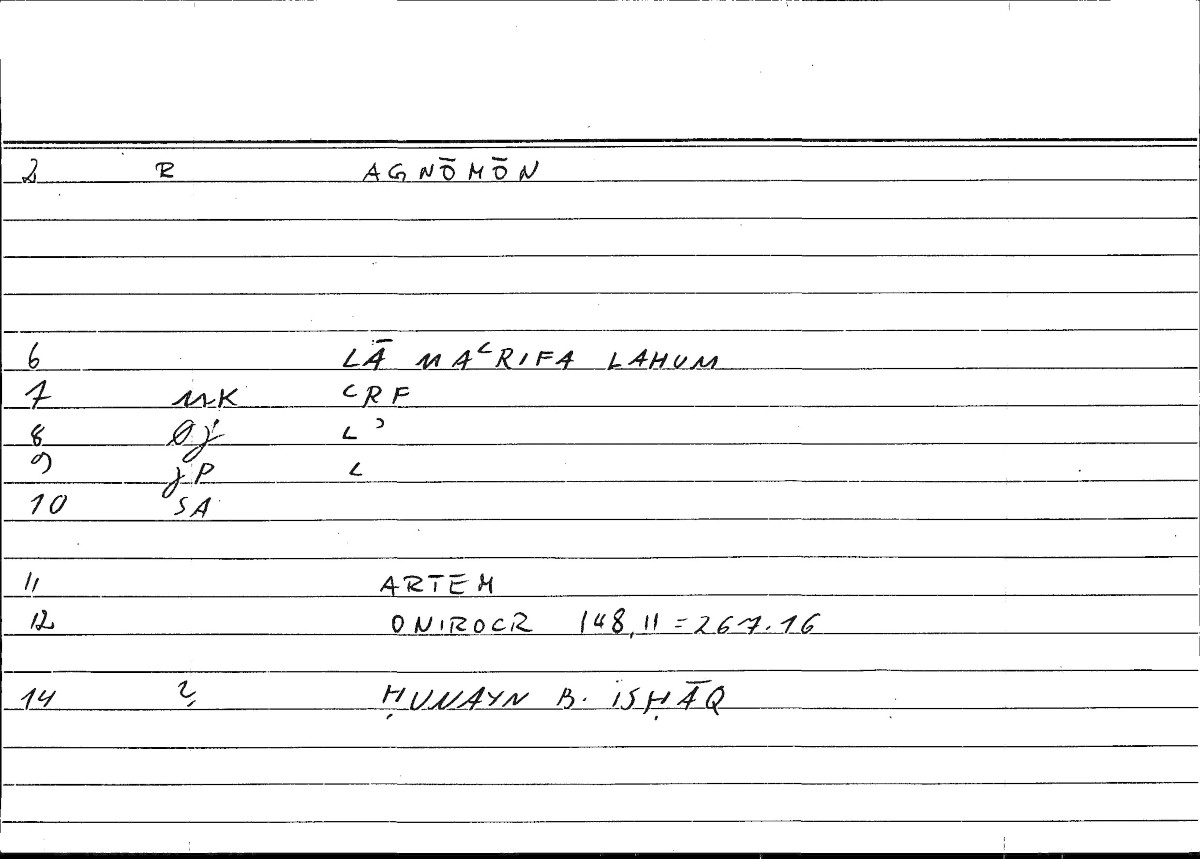 2 R AGNŌMŌN
6 LĀ MAʿRIFA LAHUM
7 MK ʿRF
8 ØJ Lʾ
9 JP L
10 SA
11 ARTEM
12 ONIROCR 148,11 = 267.16
14 Ḥ ḤUNAYN B. ISḤĀQ